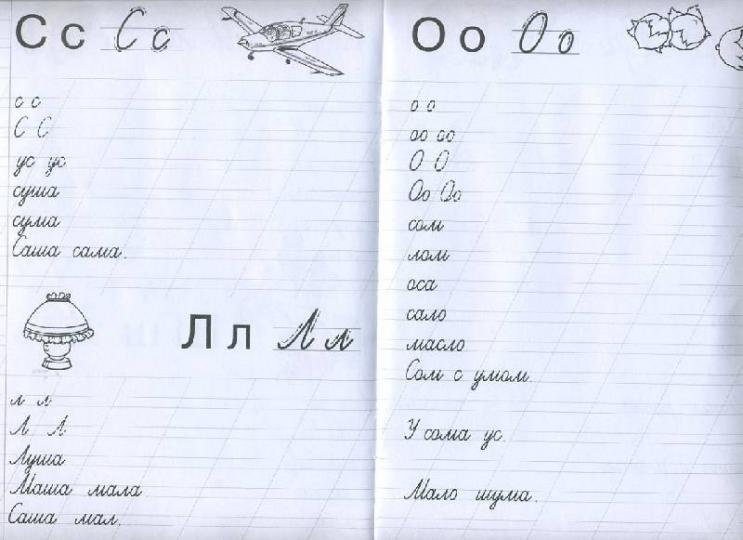 С с С с
с с
С С
ус ус
суша
сума
Саша сама.
Л л Л л
л л
Л Л
Луша
Маша мала
Саша мал.
О о О о
о о
оо оо
О О
Оо Оо
сом
лом
оса
сало
масло
Сом с умом.
У сома ус.
Мало шума.